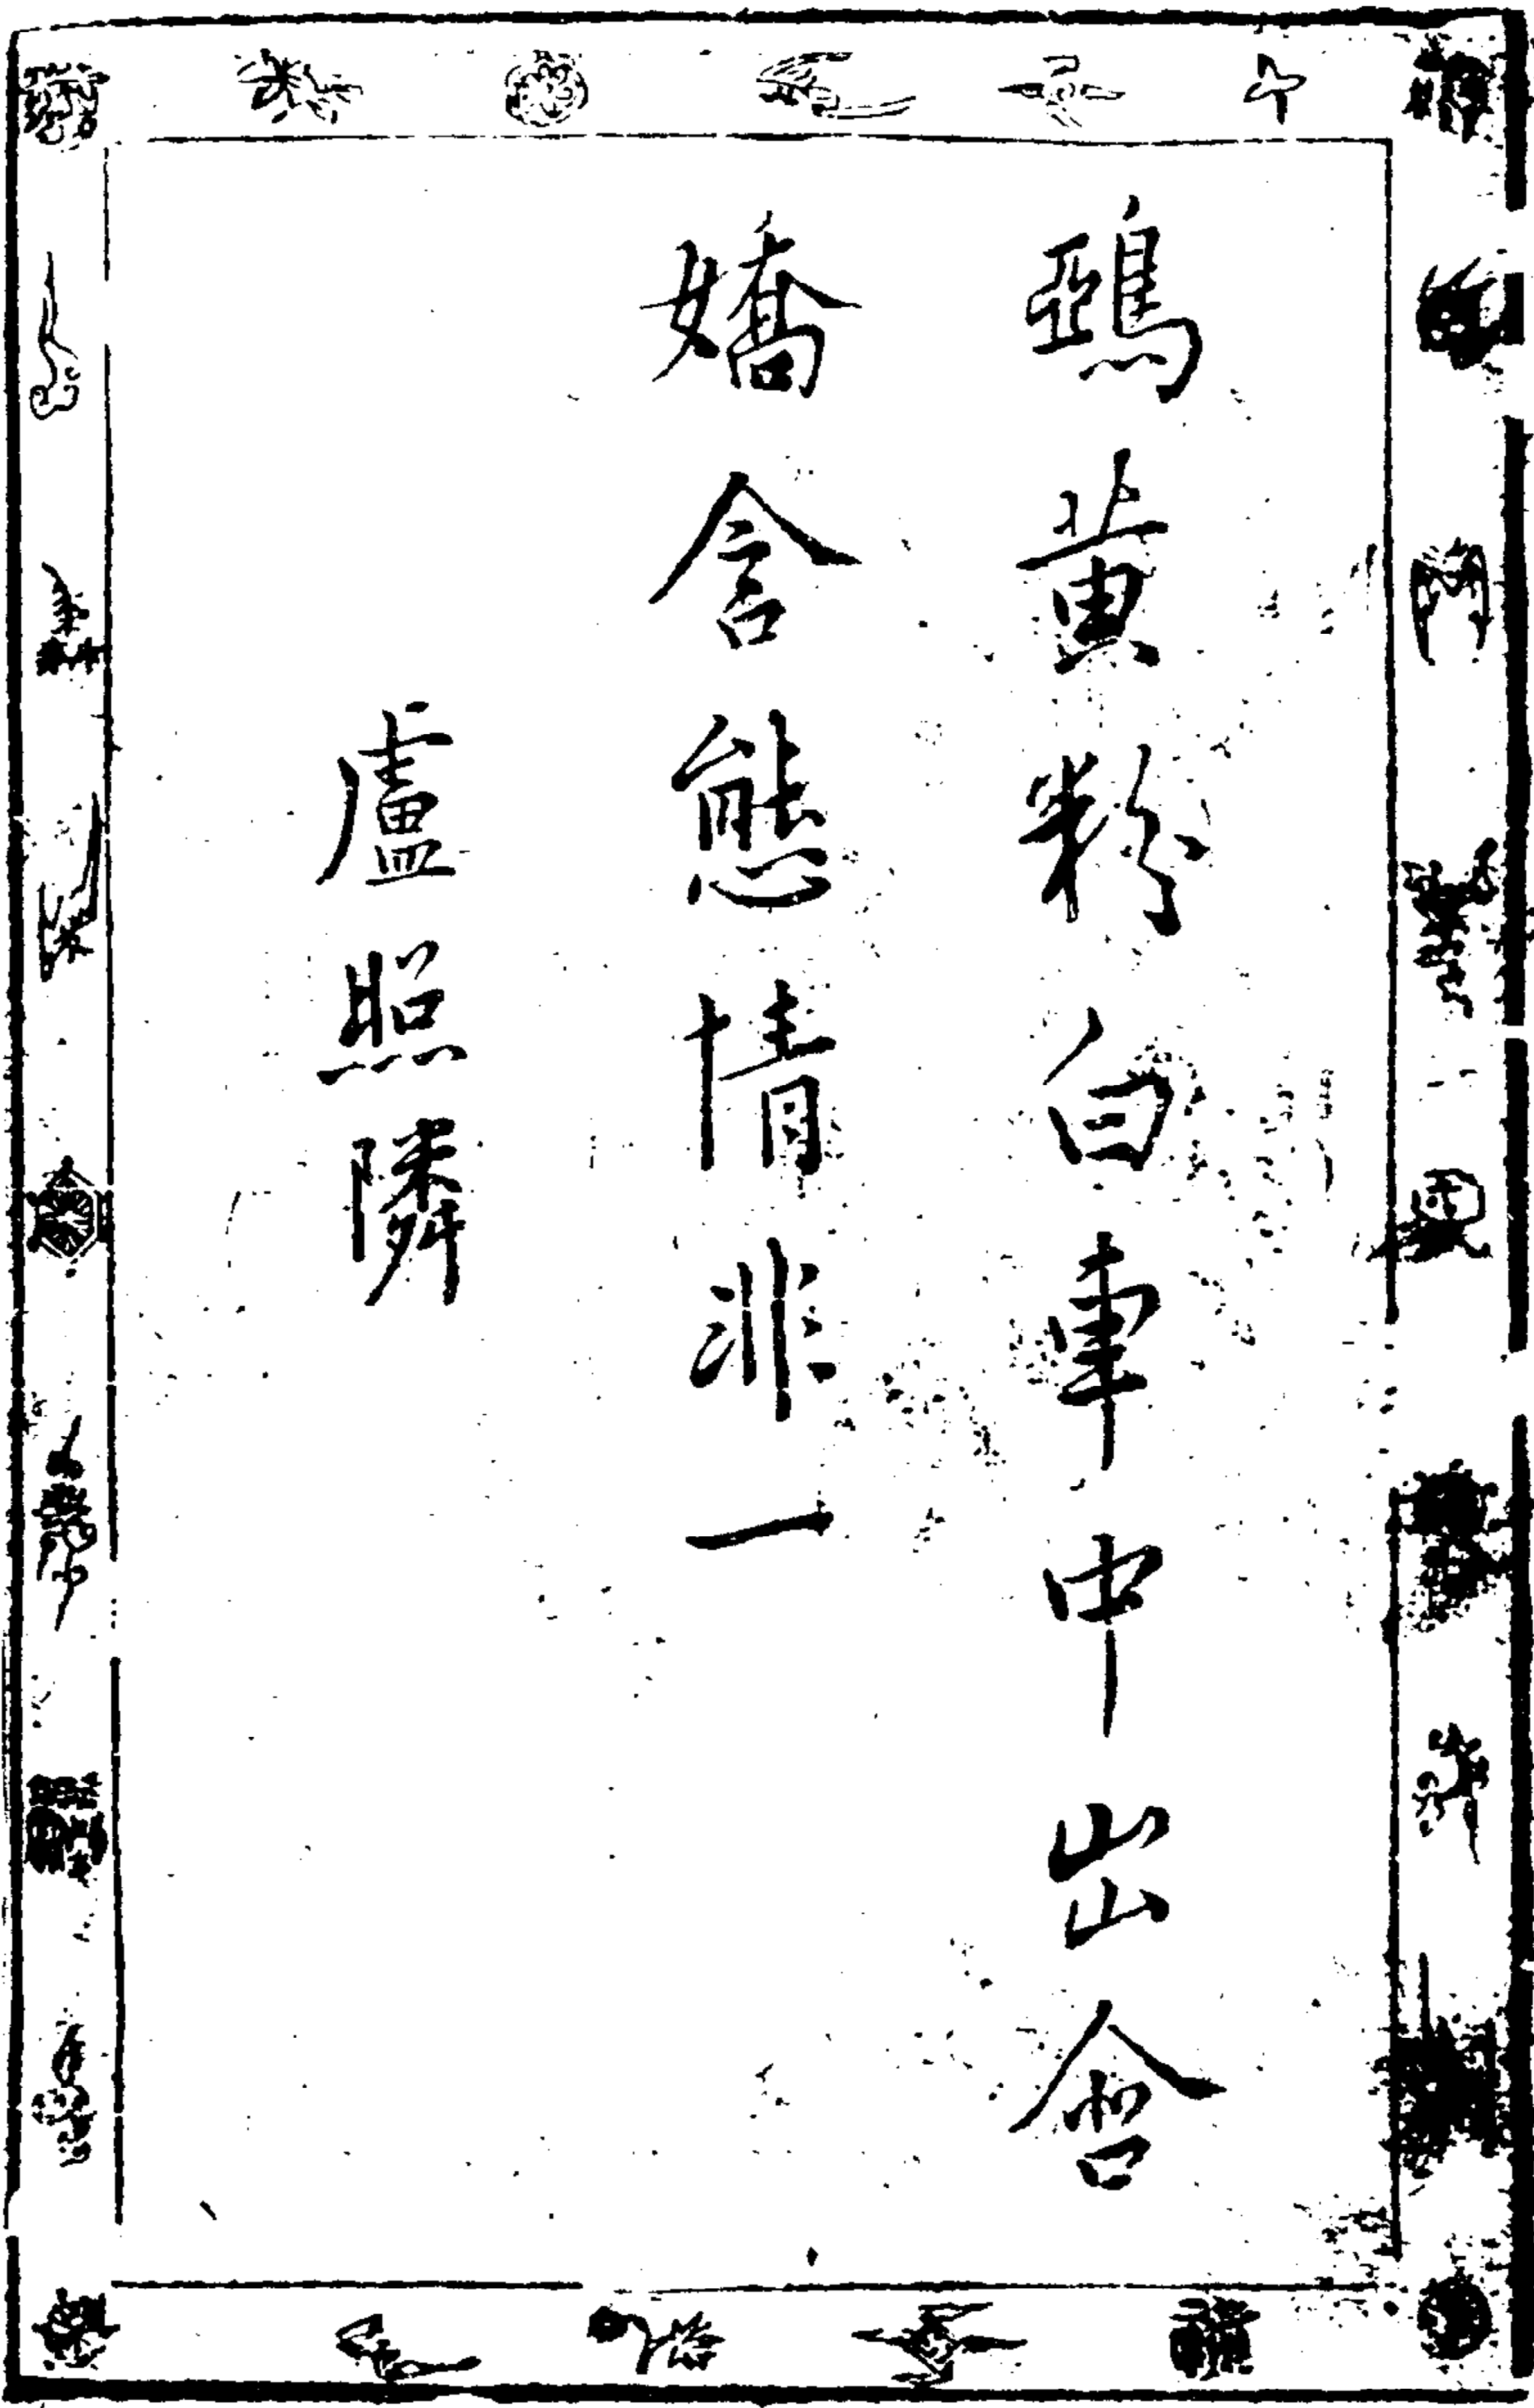 鵶黄粉白車中出含
嬌含態情非一
盧照隣